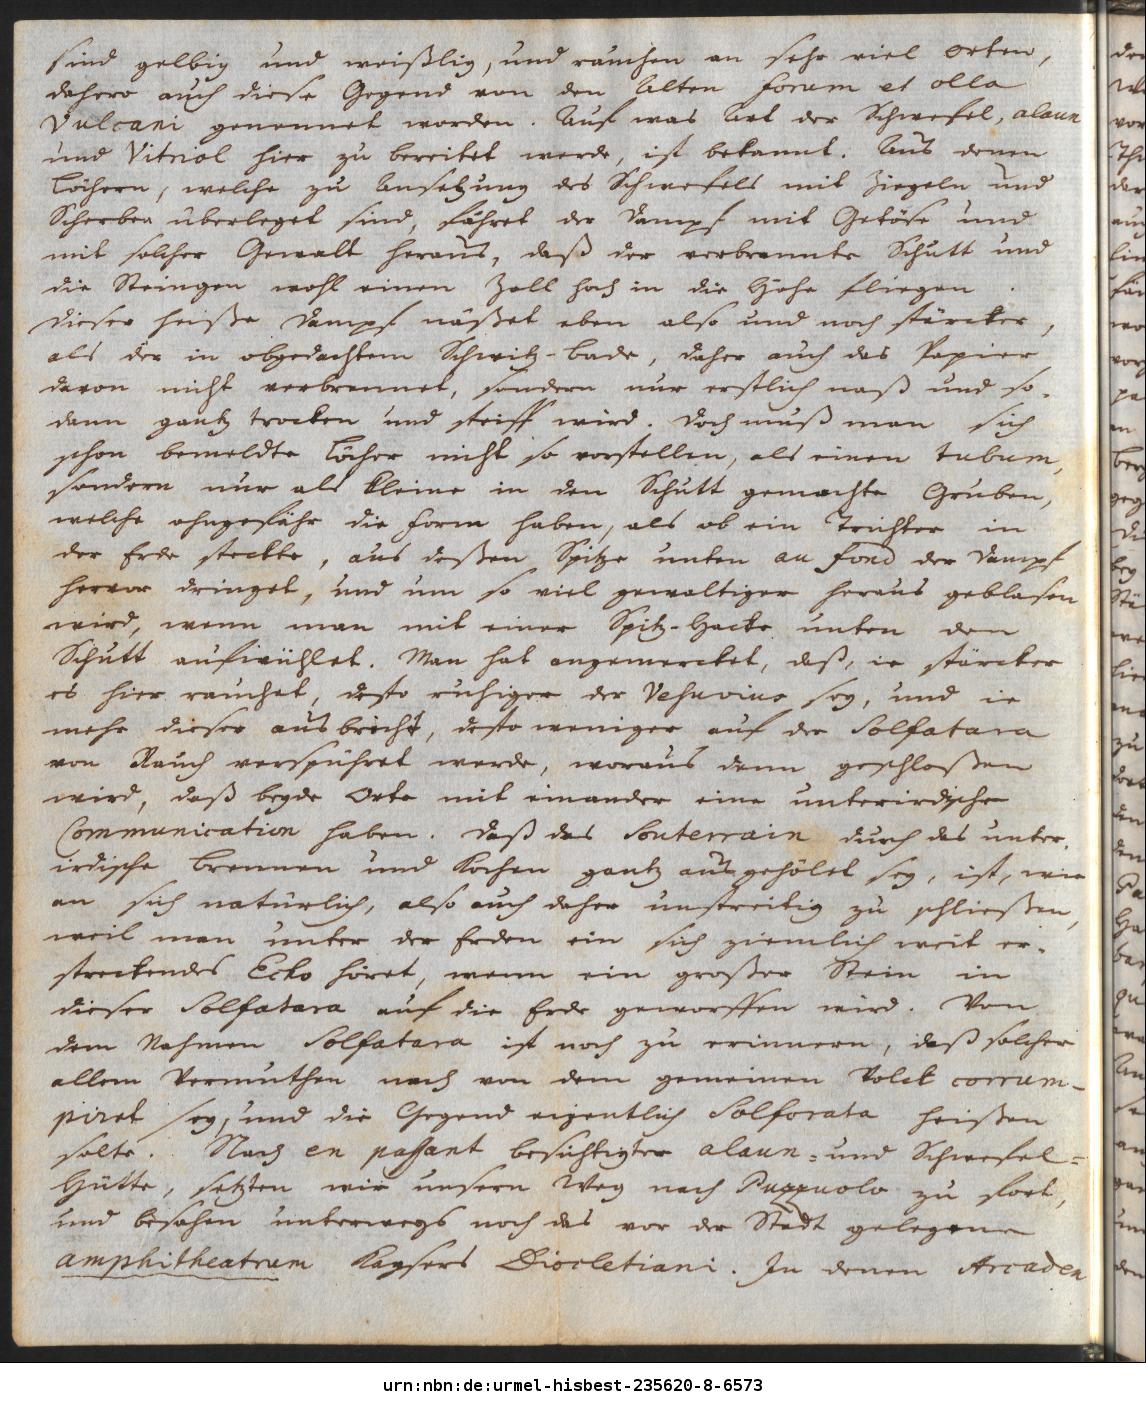 sind gelbig und weißlig, und rauchen an sehr viel Orten,
dahero auch diese Gegend von den Alten forum et olla
Vulcani genennet worden. Auf was Art der Schwefel, alaun
und Vitriol hier zu bereitet werde, ist bekannt. Aus denen
Löchern, welche zu Ansetzung des Schwefels mit Ziegeln und
Scherben überleget sind, fähret der Dampf mit Getöse und
mit solcher Gewalt heraus, daß der verbrennte Schutt und
die Steingen wohl einen Zoll hoch in die Höhe fliegen.
Dieser heiße Dampf näßet eben also und noch stärcker,
als der in obgedachtem Schwitz-Bade, daher auch das Papier
davon nicht verbrennet, sondern nur erstlich naß und so-
dann gantz trocken und steiff wird. Doch muß man sich
schon bemeldte Löcher nicht so vorstellen, als einen tubum,
sondern nur als kleine in den Schutt gemachte Gruben,
welche ohngefähr die Form haben, als ob ein Trichter in
der Erde steckte, aus deßen Spitze unten au fond der Dampf
hervor dringet, und um so viel gewaltiger heraus geblasen
wird, wenn man mit einer Spitz-Hacke unten den
Schutt aufwühlet. Man hat angemercket, daß, ie stärcker
es hier rauchet, desto ruhiger der Vesuvius sey, und ie
mehr dieser ausbricht, desto weniger auf der Solfatara
von Rauch verspühret werde, woraus denn geschloßen
wird, daß beyde Orte mit einander eine unterirdische
Communication haben. Daß das Souterrain durch das unter-
irdische Brennen und Kochen gantz ausgehölet sey, ist, wie
an sich natürlich, also auch daher unstreitig zu schließen,
weil man unter der Erden ein sich ziemlich weit er-
streckendes Echo höret, wenn ein großer Stein in
dieser Solfatara auf die Erde geworffen wird. Von
dem Nahmen Solfatara ist noch zu erinnern, daß solcher
allem Vermuthen nach von dem gemeinen Volck corrum-
piret sey, und die Gegend eigentlich Solforata heißen
solte. Nach en passant besichtigter alaun- und Schwefel-
Hütte, setzten wir unsern Weg nach Puzzuolo zu fort,
und besahen unterwegs noch das vor der Stadt gelegene
amphitheatrum Kaysers Diocletiani. In denen Arcaden
urn:nbn:de:urmel-hisbest-235620-8-6573